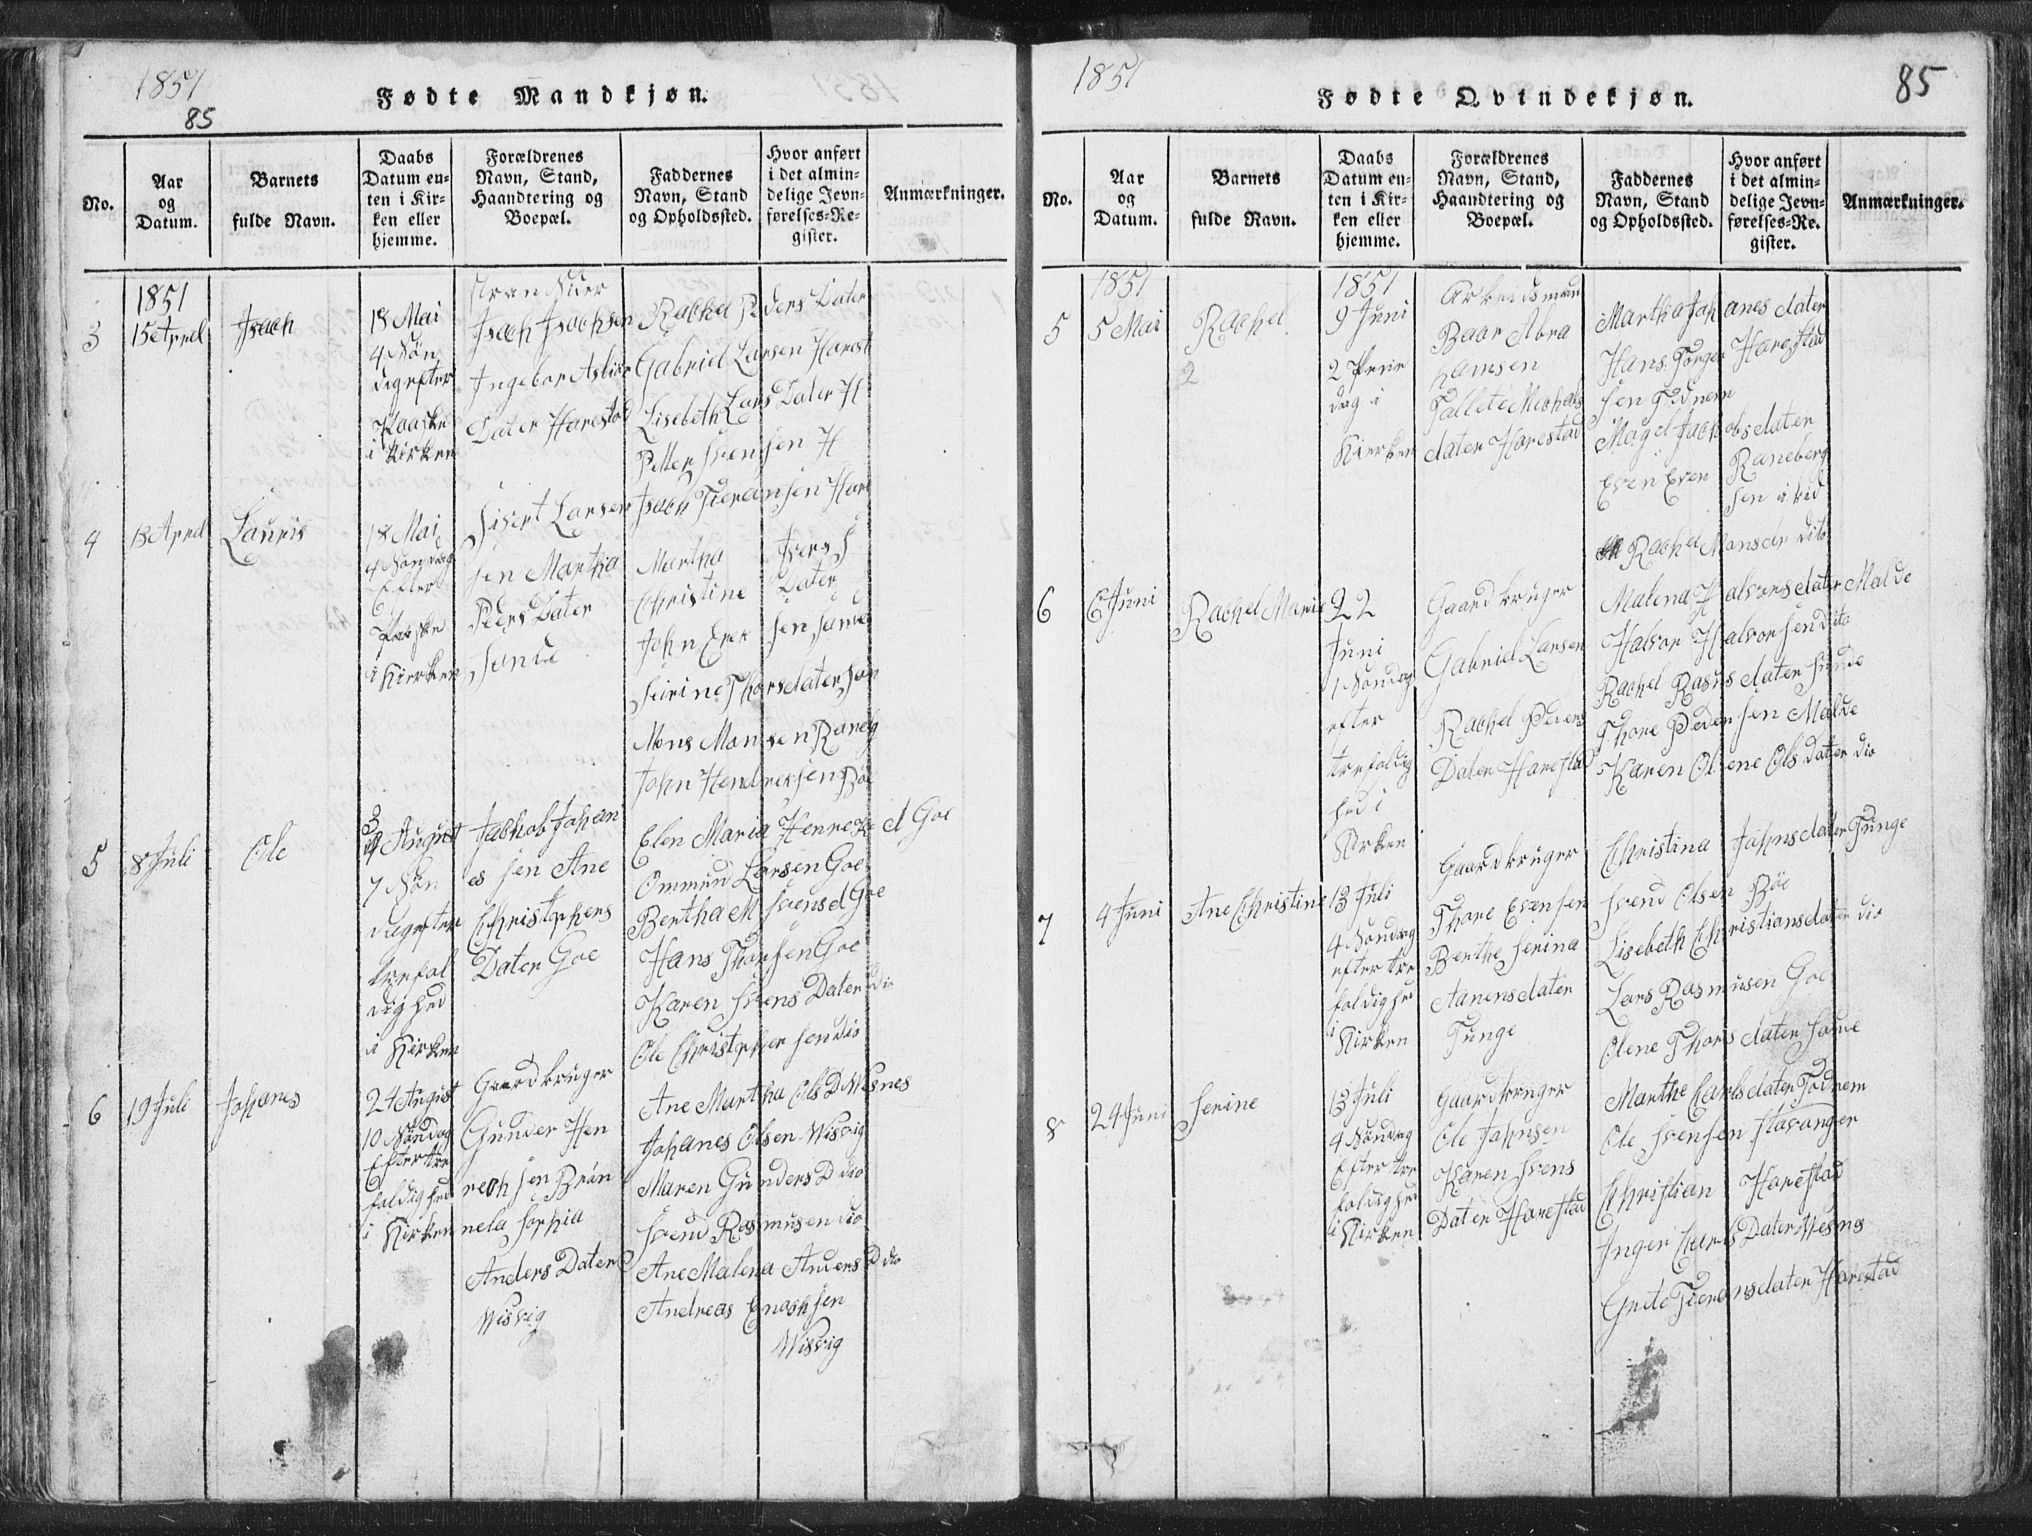 1851
85
Fødte Mandkjøn.
No.
Aar
og
Datum.
Barnets
fulde Navn.
Daabs
Datum en-
ten i Kir-
ken eller
hjemme.
Forældrenes
Navn, Stand,
Haandtering og
Boepæl.
Faddernes
Navn, Stand
og Opholdssted.
Hvor anført
i det almin-
delige Jevn-
førelses-Re-
gister.
Anmærkninger.
1851
3
15 Aprel
Isach
18 Mai
4 Søn
dag efter
Paaske
i Kirken
Isach Isachsen
Ingebor Asbiør
Dater Harestad
Rachel Peders Dater
Gabriel Larsen Harest
Lisebeth Lars Dater H
Peller Svensen H
4
13 Aprel
Lauris
18 Mai
4 Søndag
Efter
Paaske
i Kierken
Sivert Larsen
sen Martha
Peers Dater
Sande
Isach Tieransen Hare
Martha Ivers S
Christine Dater
John Erek sen Sande
Seirine Thorsdater San
Mons Monsen Raneg
John Hendreksen Bøe
5
8 Juli
Ole
3 August
7 Søn
dag efter
trefol
dighed
i Kirken
Jachob Johan
es sen Ane
Christophers
Dater Goe
Elen Maria Henrek d Goe
Ommund Larsen Goe
Bertha M Svensd Goe
Hans Thorsen Goe
Karen Svens Dater dio
Ole Christophersen dio
6
19 Juli
Johanes
24 August
10 Søndag
Efter tre
foldighed
i Kirken
Gaardbruger
Gunder Hen
rech sen Brøn
nela Sophia
Anders Dater
Wisvig
Ane Martha Ols D Wesnes
Johanes Olsen Wisvig
Maren Gunders D dio
Svend Rasmusen dio
Ane Malena Anders D dio
Andreas Enochsen
Wisvig
1851
85
Fødte Qvindekjøn.
No.
Aar
og
Datum.
Barnets
fulde Navn.
Daabs
Datum en-
ten i Kir-
ken eller
hjemme.
Forældrenes
Navn, Stand,
Haandtering og
Boepæl.
Faddernes
Navn, Stand
og Opholdssted.
Hvor anført
i det almin-
delige Jevn-
førelses-Re-
gister.
Anmærkninger.
1851
1851
5
5 Mai
Rachel
2
9 Juni
2 Peine
dag i
Kierken
Arbeidsman
Baar Abra
hamsen
Tallete Michels
dater Harestad
Martha Johanes dater
Hans Torger Harestad
sen Todnem
Magel Jachobsdater
Even Even Raneberg
sen i bid
Rachel Monsdr dito
6
6 Juni
Rachel Marie
22
Juni
1 Søndag
efter
trefoldig
hed i
Kirken
Gaardbruger
Gabriel Larsen
Rachel Peders
Dater Harestad
Malena Halvorsdater Malde
Halvor Halvorsen dito
Rachel Rasusdater Sunde
Thore Pedersen Malde
Karen Olene Olsdatter dio
7
4 Juni
Ane Christine
13 Juli
4 Søndag
efter tre
foldighed
i
Kirken
Gaardbruger
Thore Evensen
Berthe Serina
Aanensdater
Tunge
Christina Johnsdater Tunge
Svend Olsen Bøe
Lisebeth Christiansdater dio
Lars Rasmusen Goe
Olene Thors dater Same
8
24 Juni
Serine
13 Juli
4 Søndag
Efter tre
foldighed
i Kirken
Gaardbruger
Ole Johnsen
Karen Svens
Dater Harestad
Marthe Carlsdater Todnem
Ole Svensen Stavanger
Christian Harestad
Inger Carls Dater Wesnes
Grete Tieransdater Harestad